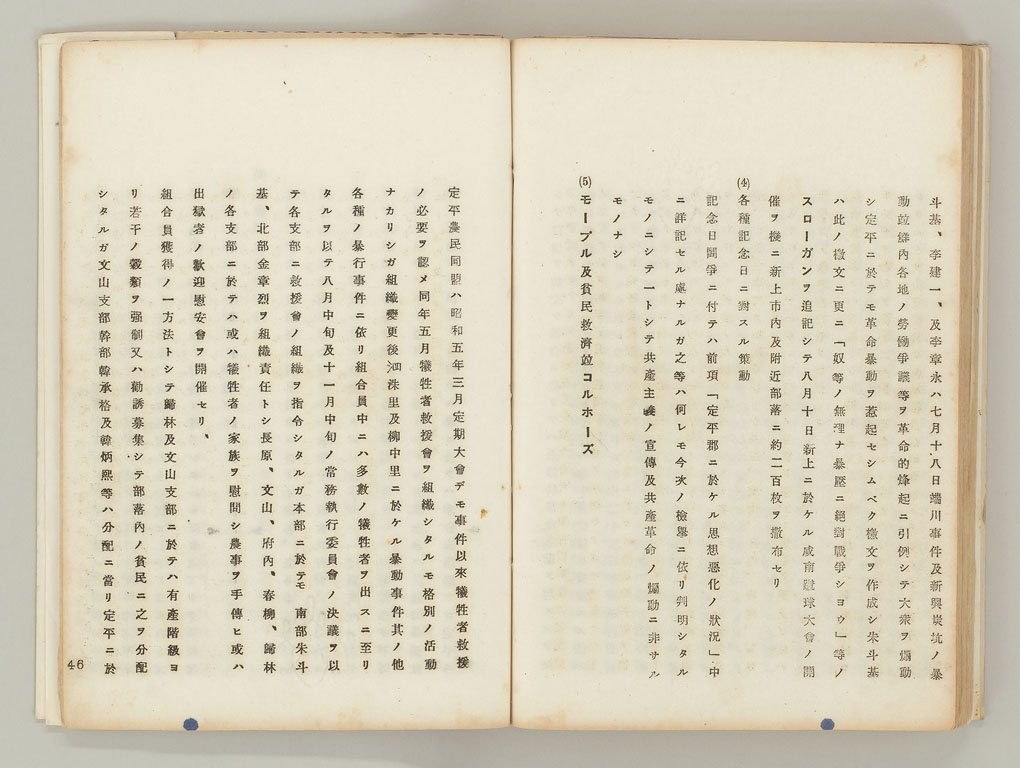 斗基、李建一、及李章永ハ七月十八日端川事件及新興炭坑ノ暴
動竝鮮內各地ノ勞働爭議等ヲ革命的烽起ニ引例シテ大衆ヲ煽動
シ定平ニ於テモ革命暴動ヲ惹起セシムベク檄文ヲ作成シ朱斗基
ハ此ノ檄文ニ更ニ「奴等ノ無理ナ暴壓ニ絕對戰爭ショウ」等ノ
スローガンヲ追記シテ八月十日新上ニ於ケル咸南蹴球大會ノ開
催ヲ機ニ新上市內及附近部落ニ約二百枚ヲ撒布セリ
(4) 各種記念日ニ對スル策動
記念日鬪爭ニ付テハ前項「定平郡ニ於ケル思想惡化ノ狀況」中
ニ詳記セル處ナルガ之等ハ何レモ今次ノ檢擧ニ依リ判明シタル
モノニシテ一トシテ共產主義ノ宣傳及共產革命ノ煽動ニ非サル
モノナシ
(5) モープル及貧民救濟竝コルホーズ
定平農民同盟ハ昭和五年三月定期大會デモ事件以來犧牲者救援
ノ必要ヲ認メ同年五月犧牲者救援會ヲ組織シタルモ格別ノ活動
ナカリシガ組織變更後泗洙里及柳中里ニ於ケル暴動事件其ノ他
各種ノ暴行事件ニ依リ組合員中ニハ多數ノ犧牲者ヲ出スニ至リ
タルヲ以テ八月中旬及十一月中旬ノ常務執行委員會ノ決議ヲ以
テ各支部ニ救援會ノ組織ヲ指令シタルガ本部ニ於テモ南部朱斗
基、北部金章烈ヲ組織責任トシ長原、文山、府內、春柳、歸林
ノ各支部ニ於テハ或ハ犧牲者ノ家族ヲ慰問シ農事ヲ手傳ヒ或ハ
出獄者ノ歡迎慰安會ヲ開催セリ、
組合員獲得ノ一方法トシテ歸林及文山支部ニ於テハ有產階級ヨ
リ若干ノ穀類ヲ强制又ハ勸誘募集シテ部落內ノ貧民ニ之ヲ分配
シタルガ文山支部幹部韓承格及韓炳熙等ハ分配ニ當リ定平ニ於
46